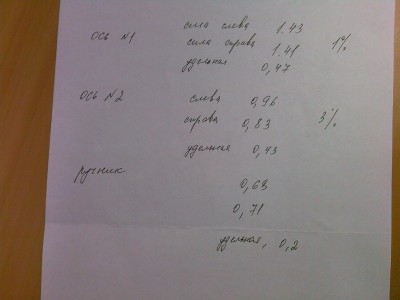 ось №1 сила слева 1.43
сила справа 1.41 1%
удельная 0,47
ось №2 слева 0,96
справа 0,83 3%
удельная 0,43
ручник 0,63
0,71
удельная, 0,2